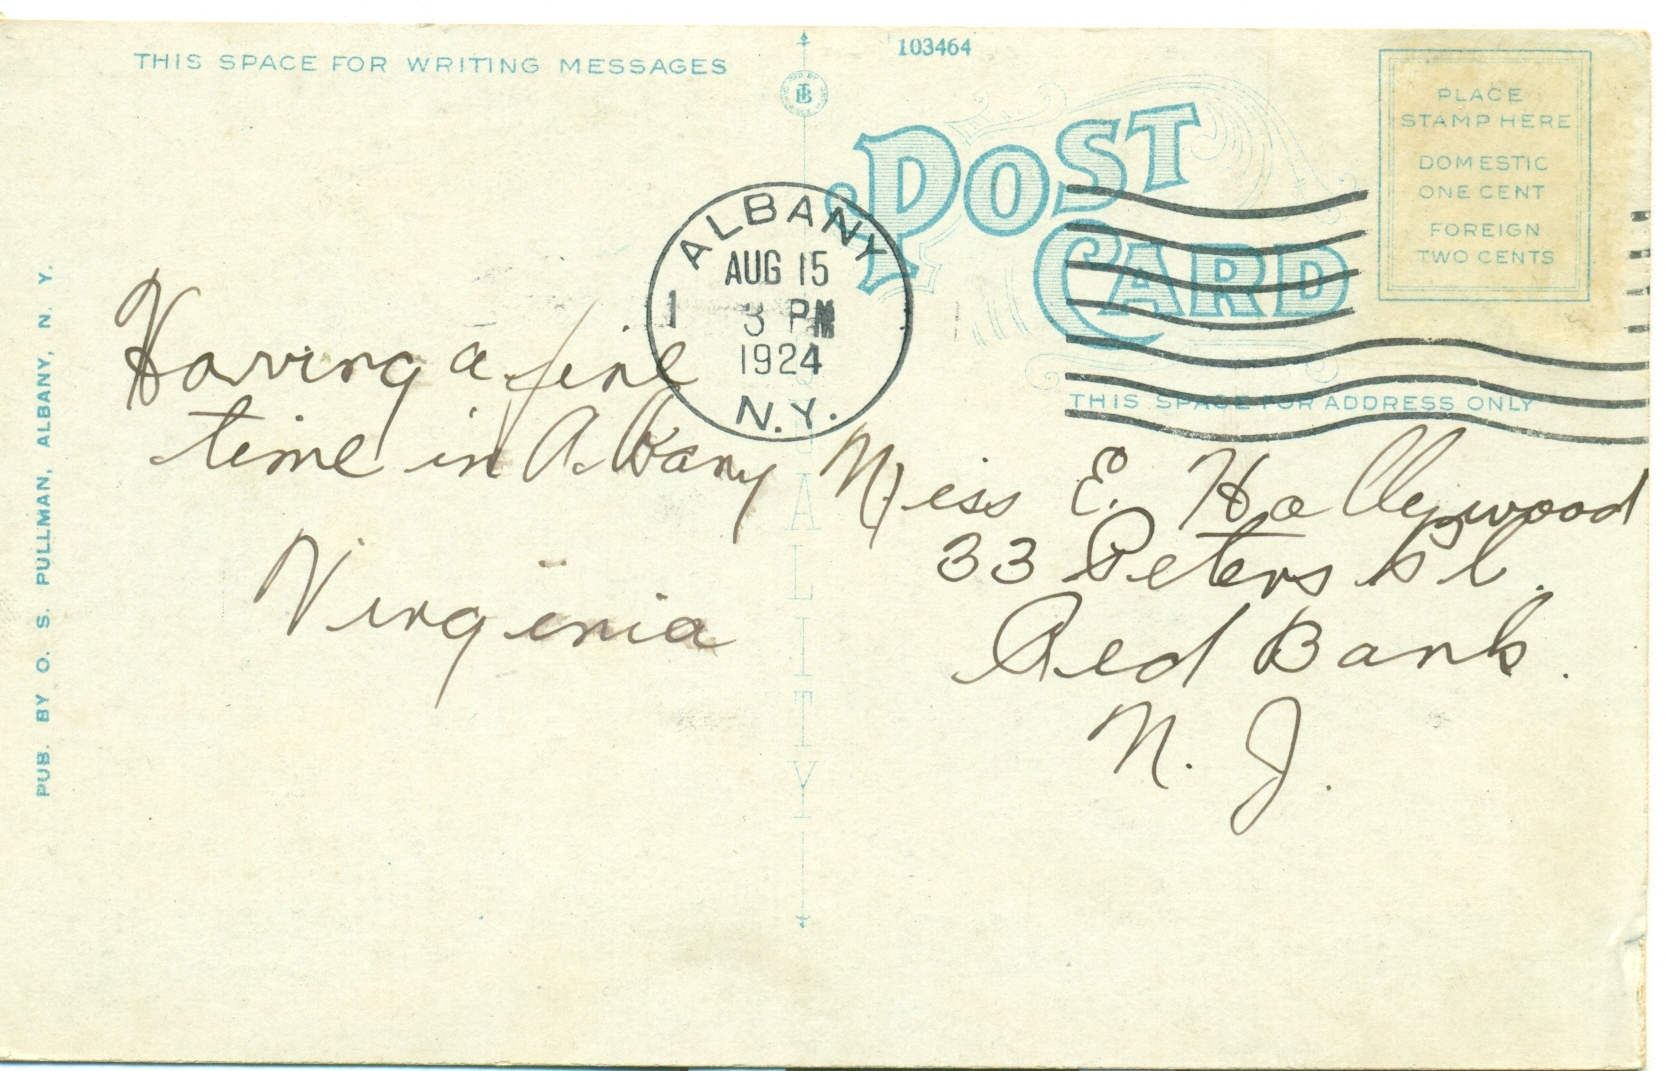 THIS SPACE FOR WRITING MESSAGES
103464
POST
CARD
PLACE
STAMP HERE
DOMESTIC
ONE CENT
FOREIGN
TWO CENTS
ALBANY
AUG 15
1 3 PM
1924
N.Y.
THIS SPACE FOR ADDRESS ONLY
Having a fine
time in Albany
Virginia
Miss E. Hollywood
33 Peters Pl.
Red Bank.
N. J.
QUALITY
PUB. BY O. S. PULLMAN, ALBANY, N. Y.